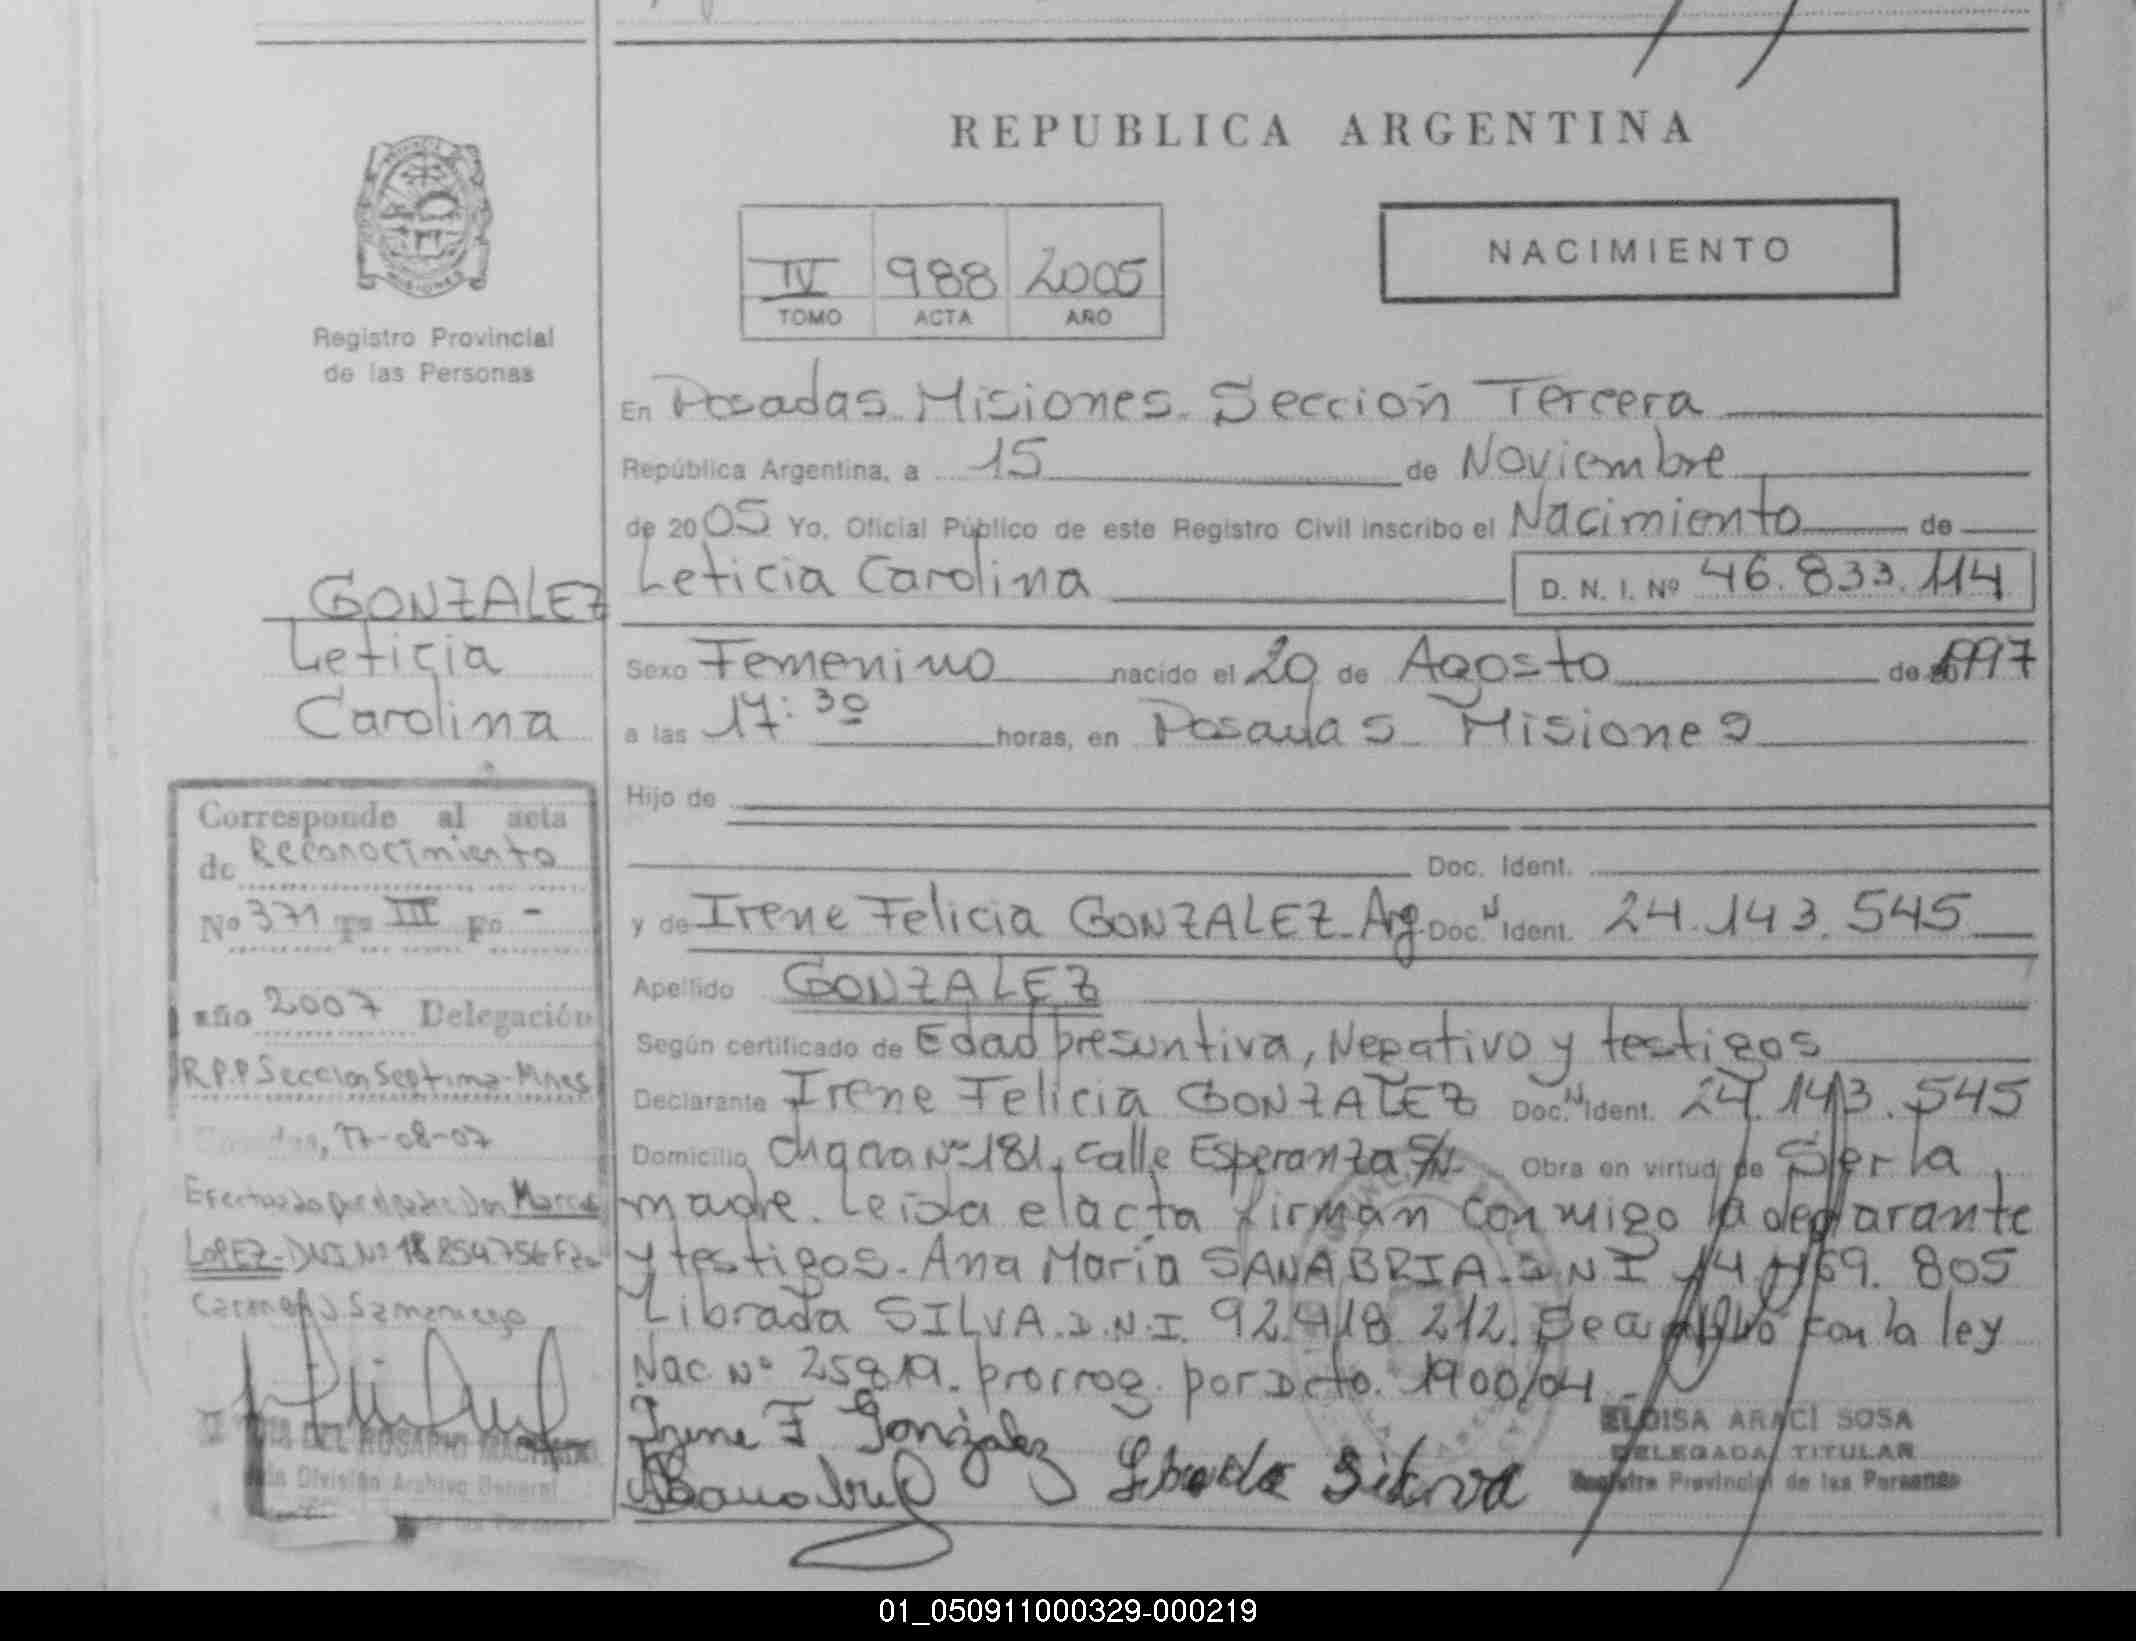 REPUBLICA ARGENTINA
NACIMIENTO
IV 988 2005
TOMO ACTA AÑO
Registro Provincial
de las Personas
GONZALEZ
Leticia
Carolina
En Posadas Misiones Sección Tercera
República Argentina, a 15 de Noviembre
de 2005 Yo, Oficial Público de este Registro Civil inscribo el Nacimiento de
Leticia Carolina D. N. I. Nº 46.833.114
Sexo Femenino nacido el 20 de Agosto de 1997
a las 17:30 horas, en Posadas Misiones
Hijo de
Doc. Ident.
y de Irene Felicia GONZALEZ Arg. Doc. Ident. 24.143.545
Apellido GONZALEZ
Según certificado de Edad presuntiva, Negativo y testigos
Declarante Irene Felicia GONZALEZ Doc. Ident. 24.143.545
Domicilio Chacra Nº 181, calle Esperanza S/N. Obra en virtud de Ser la
madre. Leida el acta firman conmigo la declarante
y testigos. Ana María SANABRIA. DNI 14.469.805
Librada SILVA. D.N.I. 92.418.212. con la ley
Nac. Nº 25819. prorrog. por Dcto. 1900/04
Irene F Gonzalez
Librada Silva
ELOISA ARACI SOSA
DELEGADA TITULAR
Registro Provincial de las Personas
Corresponde al acta
de Reconocimiento
Nº 371 Tº III Fº -
año 2007 Delegación
R.P.P Sección Septima-Mnes
17-08-07
Efectuado por el padre Don Marcos
LOPEZ-DNI Nº 18.854.756
Samaniego
DEL ROSARIO
División Archivo General
01_050911000329-000219